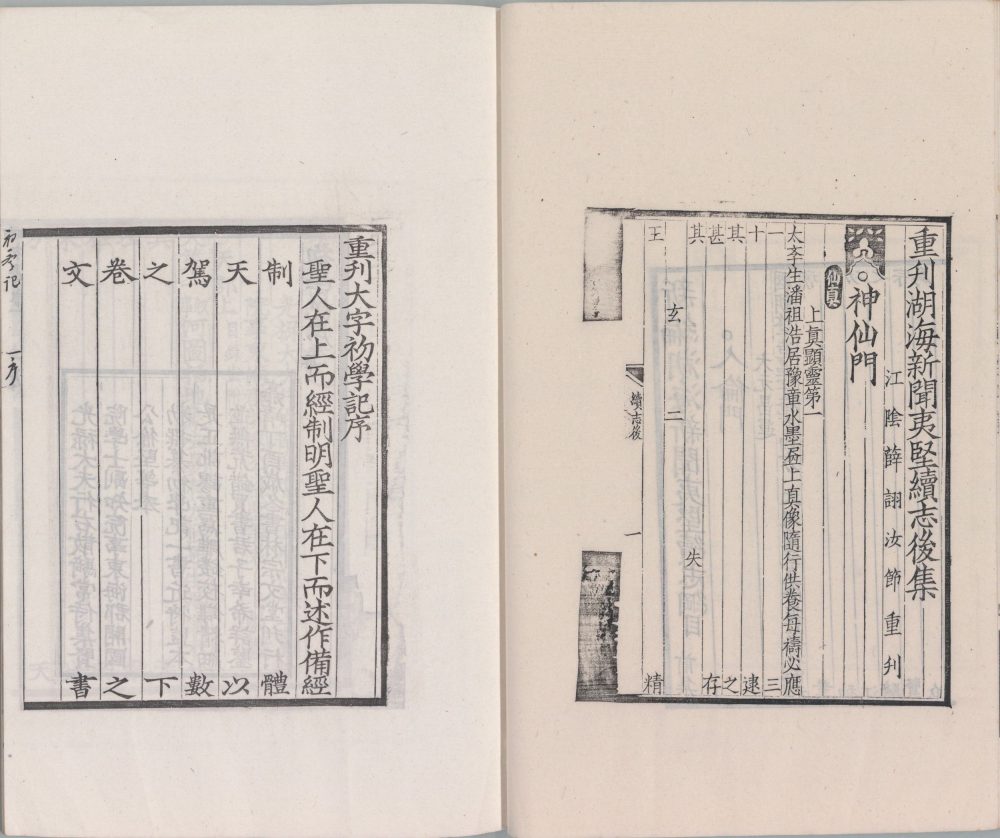 重刊湖海新聞夷堅續志後集
江陰薛詡汝節重刋
○神仙門
仙真
上真顯靈第一
太孝生潘祖浩居豫章水墨𦘕上真像隨行供養每禱必應
一 三
十 逮
其 之
甚 存
其 失
玄 二
王 精
續志後 一
重刊大字初學記序
聖人在上而經制明聖人在下而述作備經
制 體
天 以
駕 數
之 下
卷 之
文 書
初學記 一 序